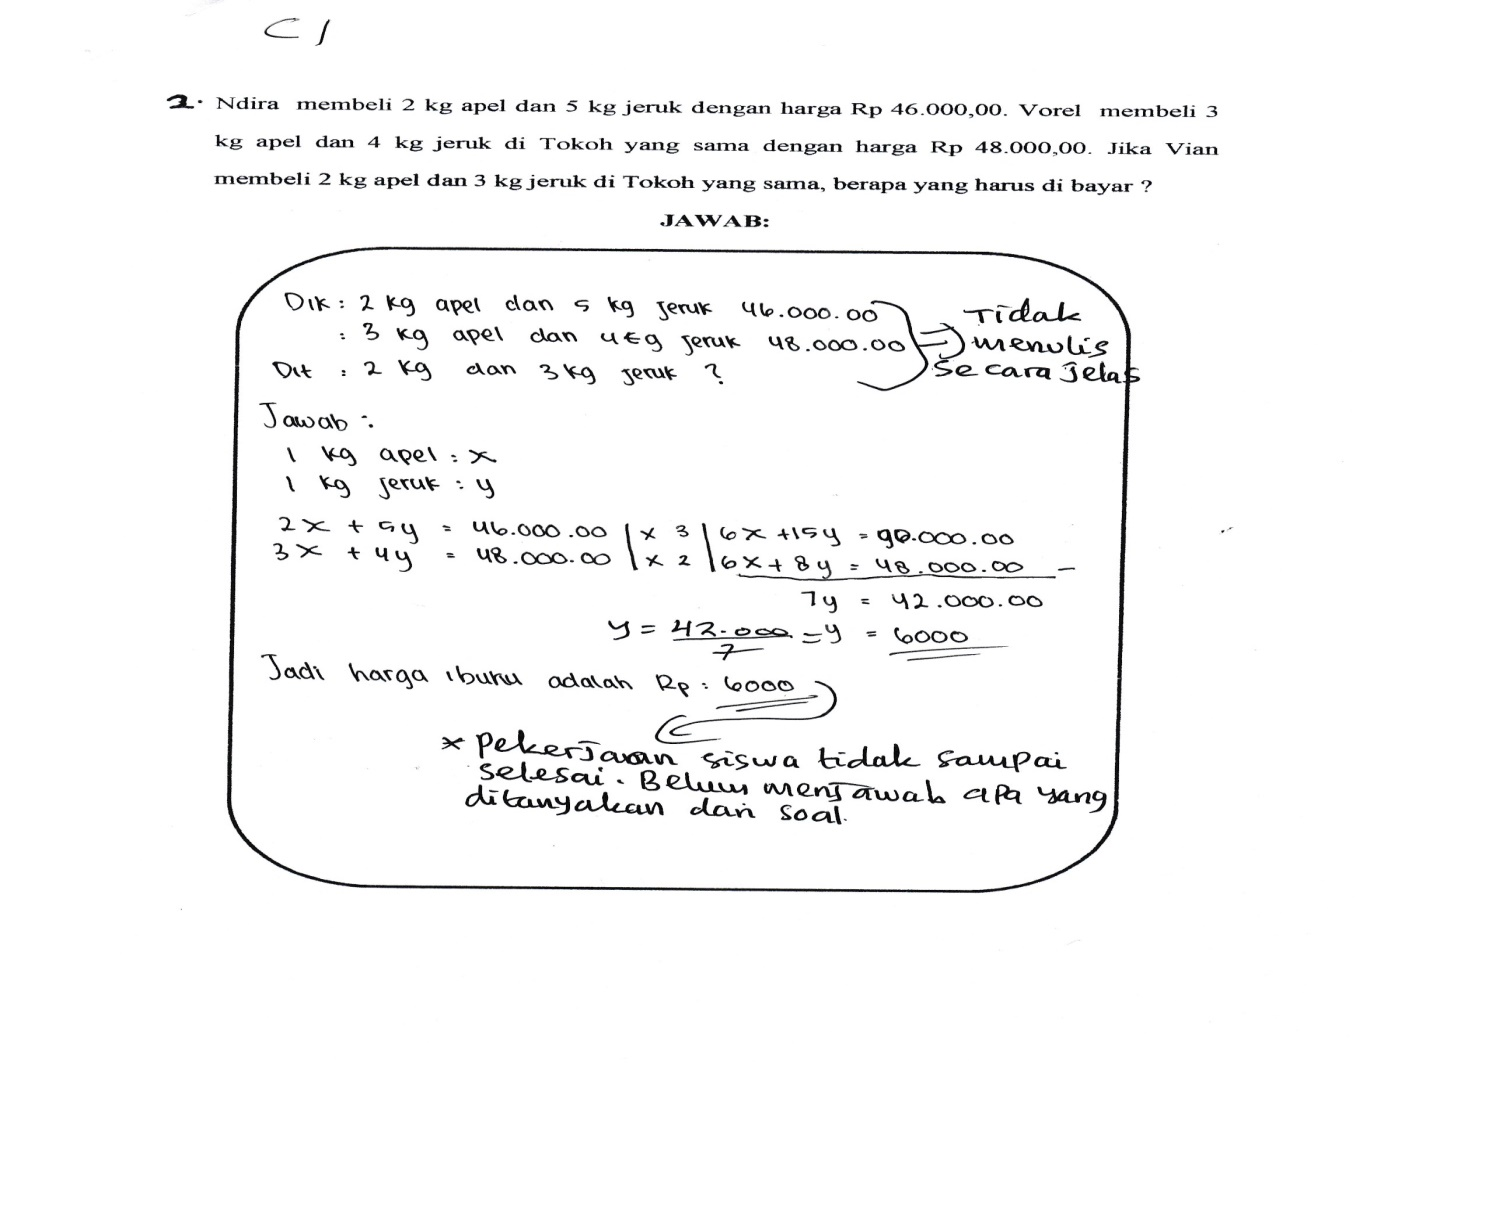 C1
2. Ndira membeli 2 kg apel dan 5 kg jeruk dengan harga Rp 46.000,00. Vorel membeli 3
kg apel dan 4 kg jeruk di Tokoh yang sama dengan harga Rp 48.000,00. Jika Vian
membeli 2 kg apel dan 3 kg jeruk di Tokoh yang sama, berapa yang harus di bayar ?
JAWAB:
Dik : 2 kg apel dan 5 kg jeruk 46.000.00
: 3 kg apel dan 4 kg jeruk 48.000.00
Dit : 2 kg dan 3 kg jeruk ?
Tidak
menulis
secara jelas
Jawab :
1 kg apel : x
1 kg jeruk : y
2x + 5y = 46.000.00 | x 3 | 6x + 15y = 90.000.00
3x + 4y = 48.000.00 | x 2 | 6x + 8y = 48.000.00 –
7y = 42.000.00
y = 42.000/7 = y = 6000
Jadi harga ibunu adalah Rp : 6000
* Pekerjaan siswa tidak sampai
selesai. Belum menjawab apa yang
ditanyakan dari soal.